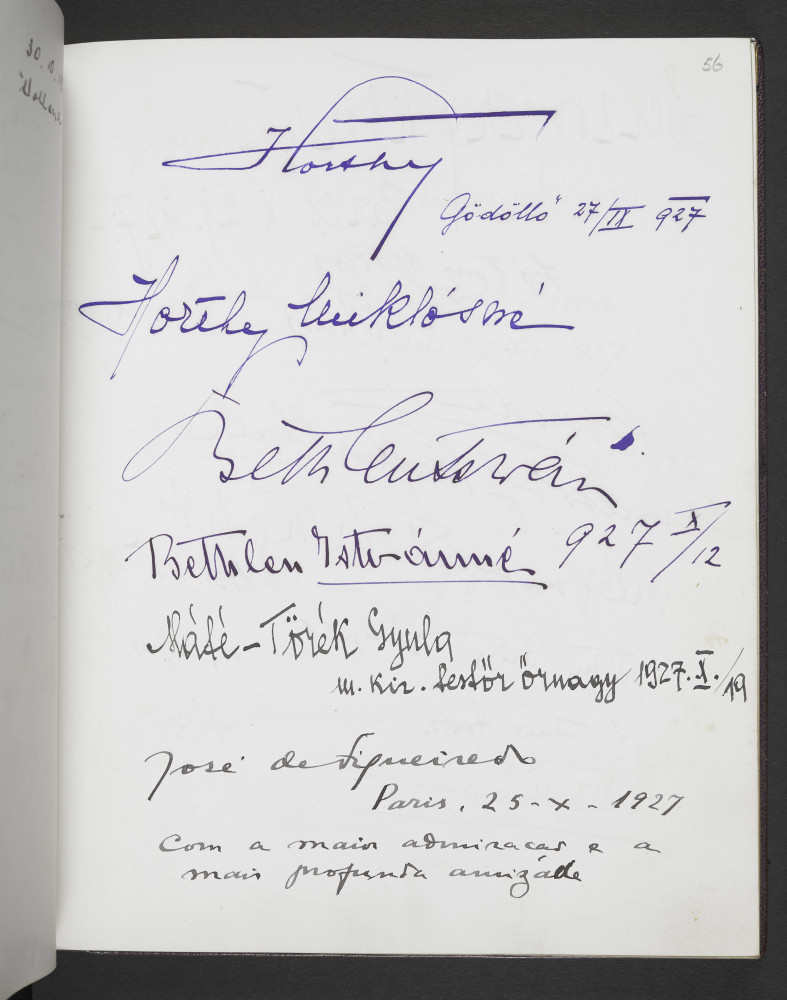 56
Horthy
Gödöllő 27/IX 927
Horthy Miklósné
Bethlen István
Bethlen Istvánné 927 X/12
Máté-Törék Gyula
m. kir. testőr őrnagy 1927. X./19
José de Figueiredo
Paris, 25-X-1927
Com a maior admiracao e a
mais profunda amizáde
30.